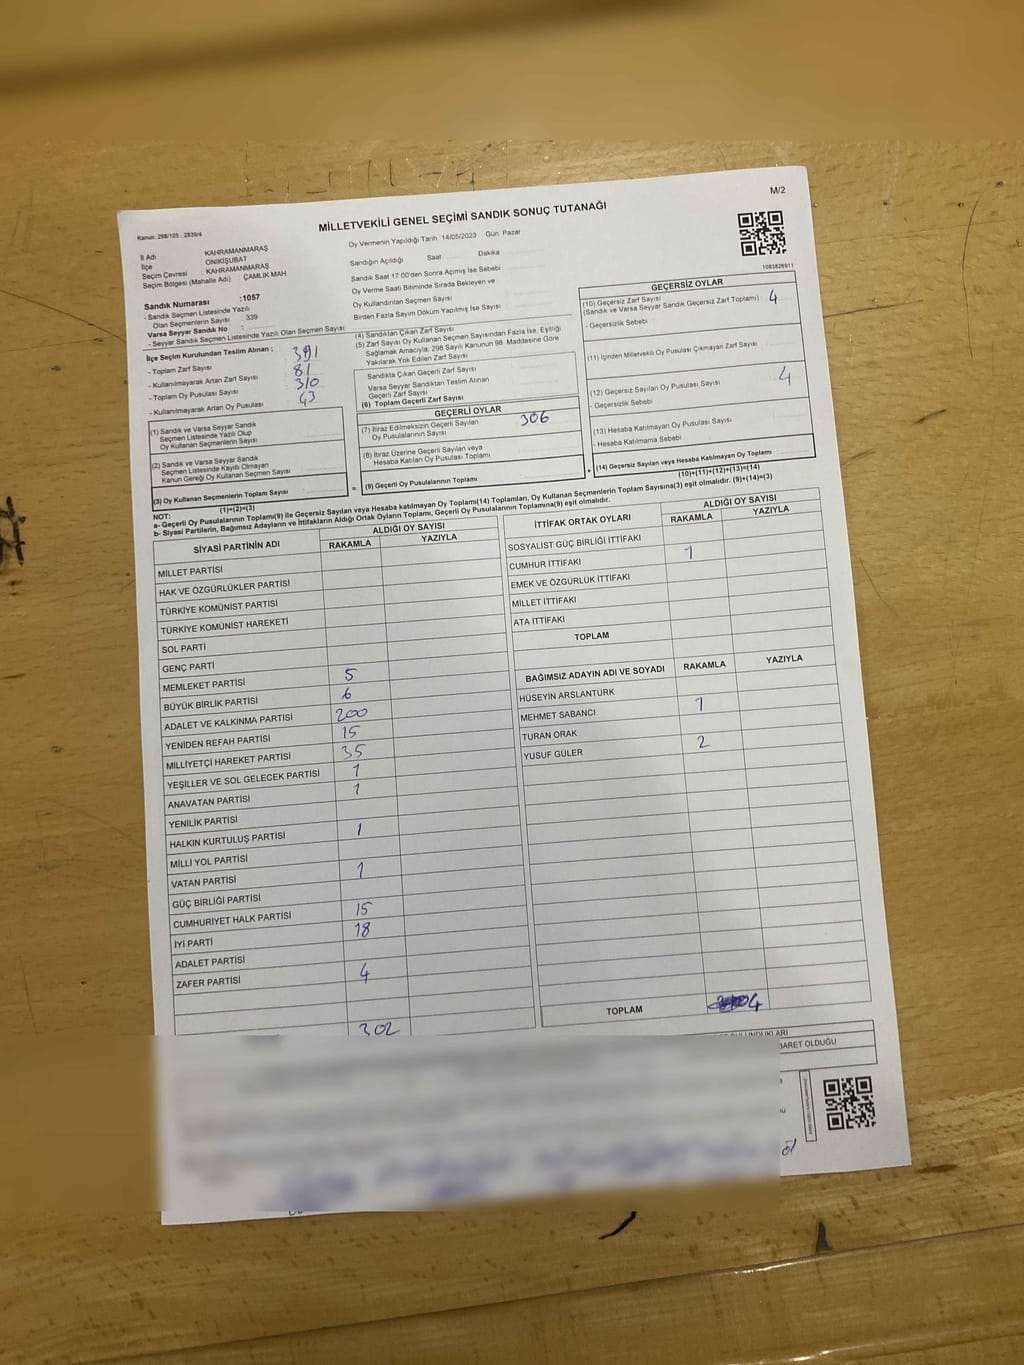 M/2
MİLLETVEKİLİ GENEL SEÇİMİ SANDIK SONUÇ TUTANAĞI
Kanun: 298/105 , 2839/4
İl Adı KAHRAMANMARAŞ
İlçe ONİKİŞUBAT
Seçim Çevresi : KAHRAMANMARAŞ
Seçim Bölgesi (Mahalle Adı) ÇAMLIK MAH
Sandık Numarası :1057
- Sandık Seçmen Listesinde Yazılı
Olan Seçmenlerin Sayısı 339
Varsa Seyyar Sandık No :
- Seyyar Sandık Seçmen Listesinde Yazılı Olan Seçmen Sayısı
Oy Vermenin Yapıldığı Tarih 14/05/2023 Gün Pazar
Sandığın Açıldığı Saat Dakika
Sandık Saat 17 00'den Sonra Açımış İse Sebebi
Oy Verme Saati Bitiminde Sırada Bekleyen ve
Oy Kullandırılan Seçmen Sayısı
Birden Fazla Sayım Döküm Yapılmış İse Sayısı
1083826911
İlçe Seçim Kurulundan Teslim Alınan ;
- Toplam Zarf Sayısı 391
- Kullanılmayarak Artan Zarf Sayısı 81
- Toplam Oy Pusulası Sayısı 310
- Kullanılmayarak Artan Oy Pusulası 43
(1) Sandık ve Varsa Seyyar Sandık
Seçmen Listesinde Yazılı Olup
Oy Kullanan Seçmenlerin Sayısı
(2) Sandık ve Varsa Seyyar Sandık
Seçmen Listesinde Kayıtlı Olmayan
Kanun Gereği Oy Kullanan Seçmen Sayısı
(3) Oy Kullanan Seçmenlerin Toplam Sayısı
(1)+(2)=(3)
(4) Sandıktan Çıkan Zarf Sayısı
(5) Zarf Sayısı Oy Kullanan Seçmen Sayısından Fazla İse, Eşitliği
Sağlamak Amacıyla; 298 Sayılı Kanunun 98. Maddesine Göre
Yakılarak Yok Edilen Zarf Sayısı
Sandıkta Çıkan Geçerli Zarf Sayısı
Varsa Seyyar Sandıktan Teslim Alınan
Geçerli Zarf Sayısı
(6) Toplam Geçerli Zarf Sayısı
GEÇERLİ OYLAR
(7) İtiraz Edilmeksizin Geçerli Sayılan
Oy Pusulalarının Sayısı 306
(8) İtiraz Üzerine Geçerli Sayılan veya
Hesaba Katılan Oy Pusulası Toplamı
=
(9) Geçerli Oy Pusulalarının Toplamı
GEÇERSİZ OYLAR
(10) Geçersiz Zarf Sayısı
(Sandık ve Varsa Seyyar Sandık Geçersiz Zarf Toplamı) 4
- Geçersizlik Sebebi
(11) İçinden Milletvekili Oy Pusulası Çıkmayan Zarf Sayısı
(12) Geçersiz Sayılan Oy Pusulası Sayısı 4
- Geçersizlik Sebebi
(13) Hesaba Katılmayan Oy Pusulası Sayısı
- Hesaba Katılmama Sebebi
+
(14) Geçersiz Sayılan veya Hesaba Katılmayan Oy Toplamı
(10)+(11)+(12)+(13)=(14)
NOT:
a- Geçerli Oy Pusulalarının Toplamı(9) ile Geçersiz Sayılan veya Hesaba katılmayan Oy Toplamı(14) Toplamları, Oy Kullanan Seçmenlerin Toplam Sayısına(3) eşit olmalıdır. (9)+(14)=(3)
b- Siyasi Partilerin, Bağımsız Adayların ve İttifakların Aldığı Ortak Oyların Toplamı, Geçerli Oy Pusulalarının Toplamına(9) eşit olmalıdır.
SİYASİ PARTİNİN ADI ALDIĞI OY SAYISI
RAKAMLA YAZIYLA
MİLLET PARTİSİ
HAK VE ÖZGÜRLÜKLER PARTİSİ
TÜRKİYE KOMÜNİST PARTİSİ
TÜRKİYE KOMÜNİST HAREKETİ
SOL PARTİ
GENÇ PARTİ
MEMLEKET PARTİSİ 5
BÜYÜK BİRLİK PARTİSİ 6
ADALET VE KALKINMA PARTİSİ 200
YENİDEN REFAH PARTİSİ 15
MİLLİYETÇİ HAREKET PARTİSİ 35
YEŞİLLER VE SOL GELECEK PARTİSİ 1
ANAVATAN PARTİSİ 1
YENİLİK PARTİSİ
HALKIN KURTULUŞ PARTİSİ 1
MİLLİ YOL PARTİSİ
VATAN PARTİSİ 1
GÜÇ BİRLİĞİ PARTİSİ
CUMHURİYET HALK PARTİSİ 15
İYİ PARTİ 18
ADALET PARTİSİ
ZAFER PARTİSİ 4
302
İTTİFAK ORTAK OYLARI ALDIĞI OY SAYISI
RAKAMLA YAZIYLA
SOSYALİST GÜÇ BİRLİĞİ İTTİFAKI
CUMHUR İTTİFAKI 1
EMEK VE ÖZGÜRLÜK İTTİFAKI
MİLLET İTTİFAKI
ATA İTTİFAKI
TOPLAM
BAĞIMSIZ ADAYIN ADI VE SOYADI RAKAMLA YAZIYLA
HÜSEYİN ARSLANTÜRK
MEHMET SABANCI 1
TURAN ORAK
YUSUF GÜLER 2
TOPLAM 4
BARET OLDUĞU